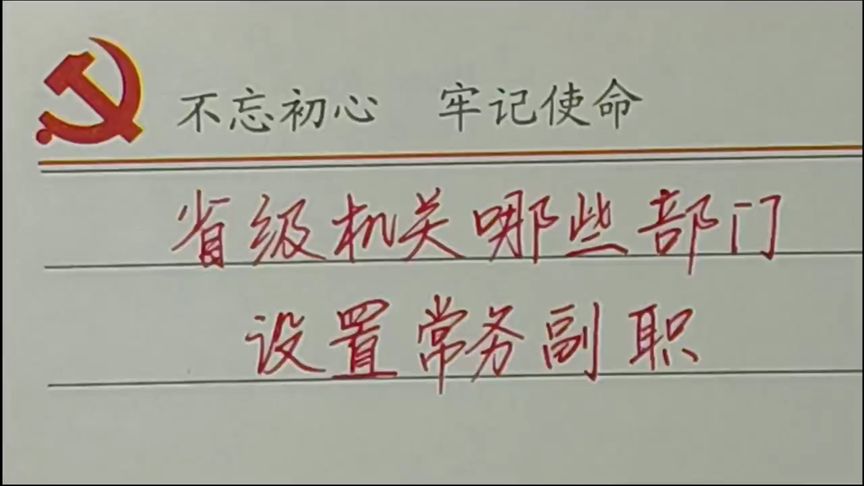 不忘初心 牢记使命
省级机关哪些部门
设置常务副职